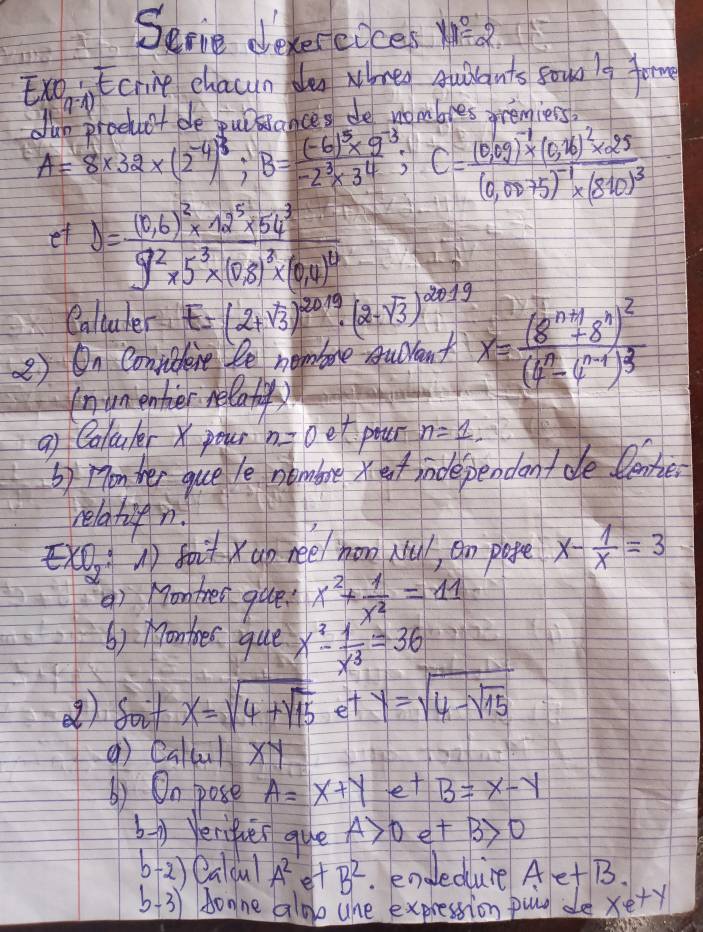 Serie d'exercices N°=2
EXO n°1) Ecrire chacun des Nbres suivants sous la forme
d'un produit de puissances de nombres premiers.
A = 8×32×(2^-4)^3 ; B = ((-6)^5×9^-3)/(-2^3×3^4) ; C = ((0,09)^-1×(0,16)^2×25)/((0,0075)^-1×(810)^3)
et D = ((0,6)^2×12^5×54^3)/(9^2×5^3×(0,8)^3×(0,4)^4)
Calculer E=(2+√3)^2019.(2-√3)^2019
2) On Considère le nombre suivant X = (8^(n+1)+8^n)^2/(4^n-4^(n-1))^3
(n un entier relatif)
a) Calculer X pour n=0 et pour n=1.
b) Montrer que le nombre X est indépendant de l'entier
relatif n.
EXO2: 1) Soit X un réel non Nul, On pose x-1/x = 3
a) Montrer que: x^2+1/x^2 = 11
b) Montrer que x^3-1/x^3 = 36
2) Soit X=√(4+√15) et Y=√(4-√15)
a) Calcul XY
b) On pose A= X+Y et B=X-Y
b-1) Verifier que A>0 et B>0
b-2) Calcul A^2 et B^2. en deduire A et B.
b-3) Donne alors une expression de X et Y